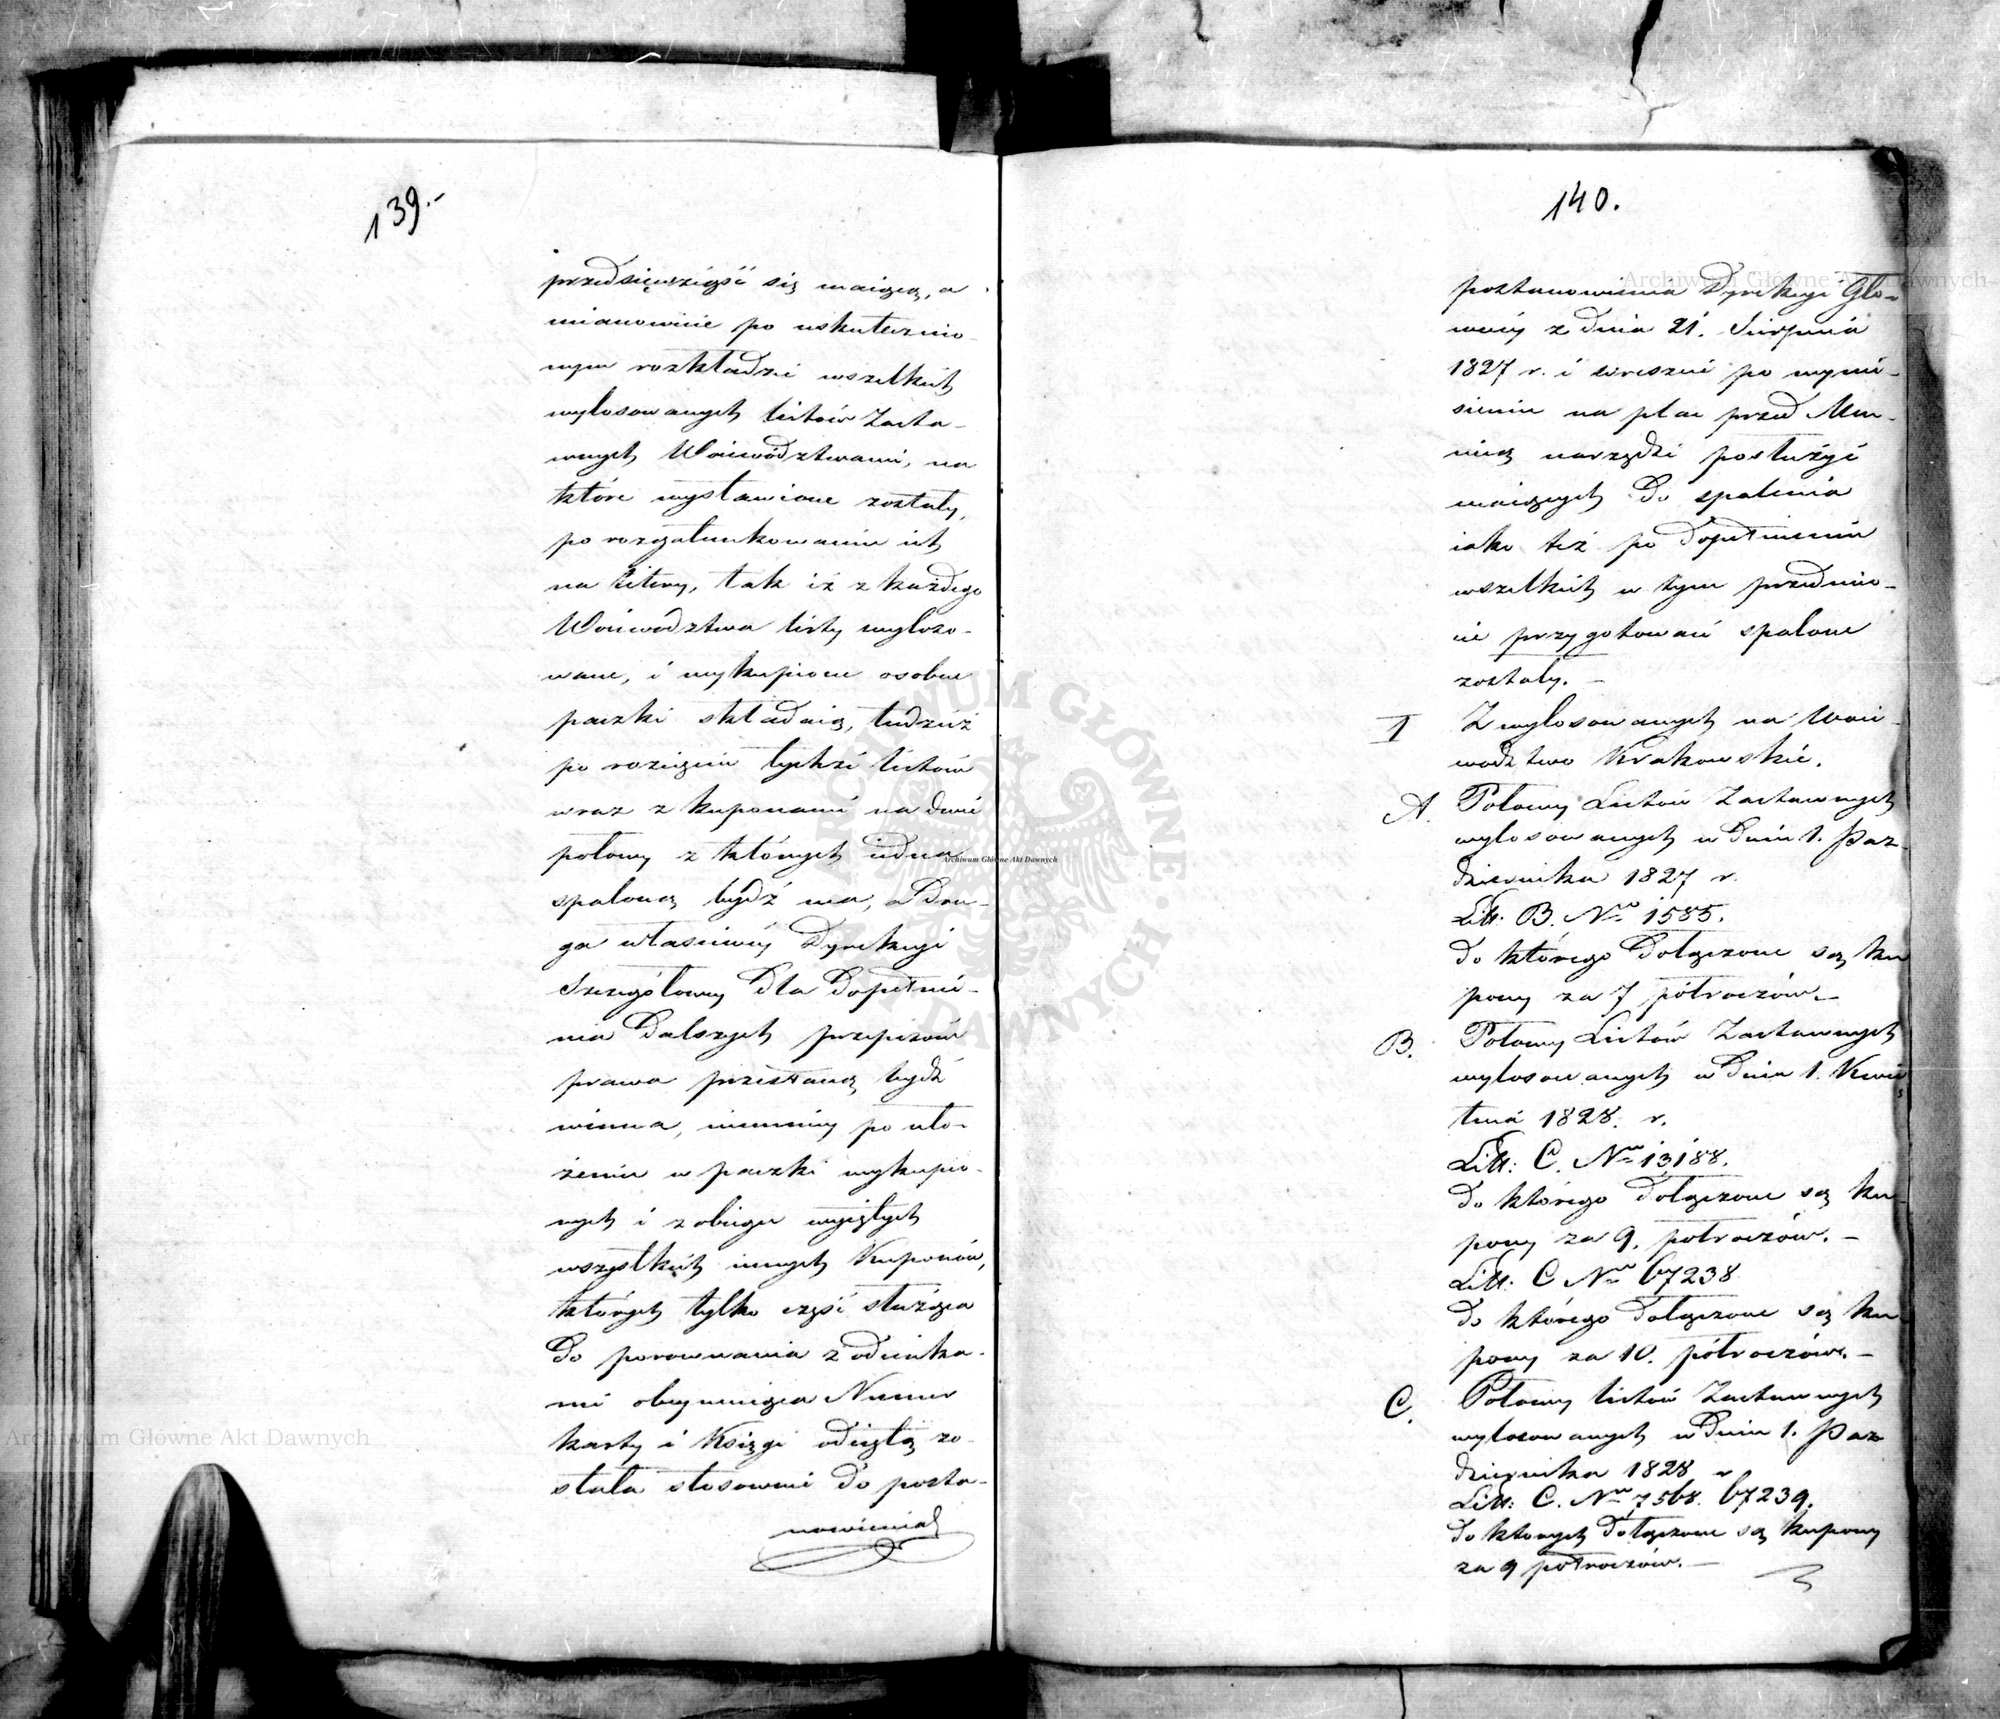 139.-
przedsięwziąść się maiącą, a
mianowicie po uskutecznio-
nym rozkładzie wszelkich
wylosowanych listów Zasta-
wnych Woiewództwami, na
które wystawione zostały,
po rozgatunkowaniu ich
na litery, tak iż z każdego
Woiewództwa listy wyloso-
wane, i wykupione osobne
paczki składaią, tudzież
po rozcięciu tychże listów
wraz z kuponami na dwie
połowy z których iedna
spaloną bydź ma, a dru-
ga właściwéy Dyrekcyi
Szczegółowey dla dopełnie-
nia dalszych przepisów
prawa przesłaną bydź
winna, niemniey po uło-
żeniu w paczki wykupio-
nych i z obiegu wyiętych
wszystkich innych Kuponów,
których tylko część służąca
do porownania z odcinka-
mi obeymuiąca Numer
karty i Księgi odciętą zo-
stała stosownie do posta-
nowienia
140.
postanowienia Dyrekcyi Głó-
wnéy z dnia 21. Sierpnia
1827 r. i wreszcie po wynie-
sieniu na plac przed Men-
nicą narzędzi posłużyć
maiących do spalenia
iako też po dopełnieniu
wszelkich w tym przedmio-
cie przygotowań spalone
zostały. -
I Z wylosowanych na Woie-
wodztwo Krakowskie.
A. Połowy Listów Zastawnych
wylosowanych w dniu 1. Paz-
dziernika 1827 r.
Litt: B. Nro 1585.
do którego dołączone są ku
pony za 7 półroczów.-
B. Połowy Listów Zastawnych
wylosowanych w dniu 1. Kwie
tnia 1828. r.
Litt: C. Nro 13188.
do którego dołączone są ku-
pony za 9. półroczów. -
Litt: C Nro 67238
do którego dołączone są ku
pony za 10. półroczów. -
C. Połowy listów Zastawnych
wylosowanych w dniu 1. Paz
dziernika 1828 r
Litt: C. Nro 7568. 67239.
do ktorych dołączone są kupony
za 9 półroczów. -
Archiwum Główne Akt Dawnych
Archiwum Główne Akt Dawnych
Archiwum Główne Akt Dawnych
ARCHIWUM GŁÓWNE AKT DAWNYCH